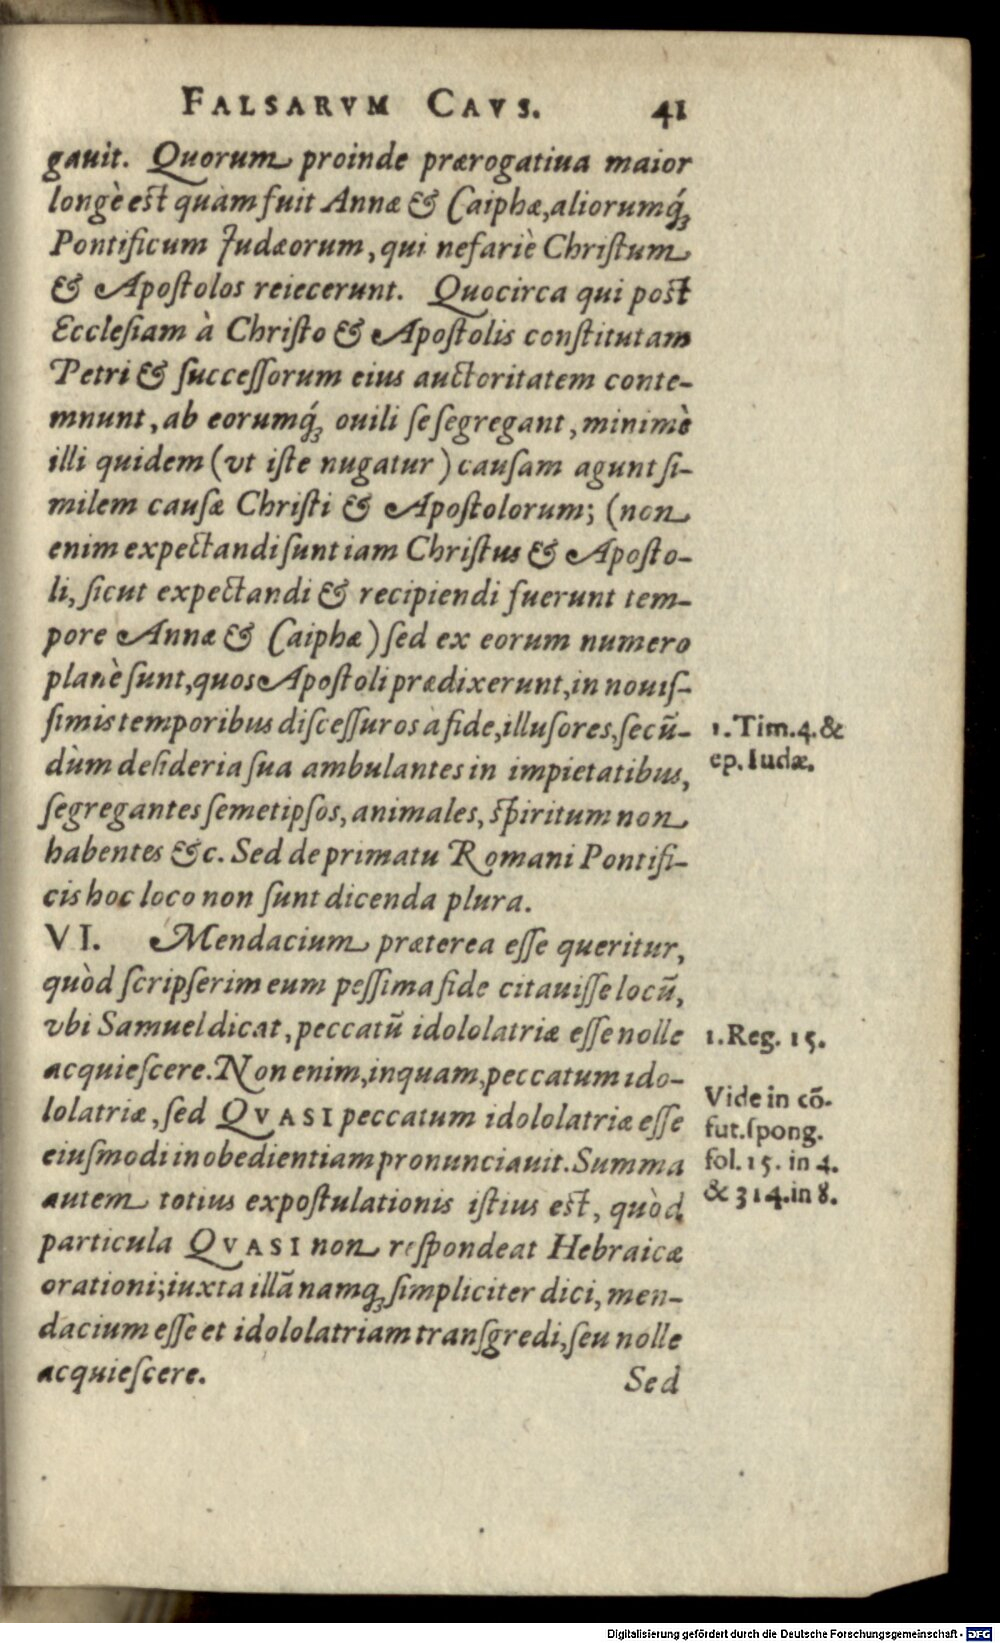 FALSARVM CAVS. 41
gauit. Quorum proinde prærogatiua maior
longè est quàm fuit Annæ & Caiphæ, aliorumq́;
Pontificum Judæorum, qui nefariè Chriſtum
& Apoſtolos reiecerunt. Quocirca qui post
Eccleſiam à Chriſto & Apoſtolis conſtitutam
Petri & ſucceſſorum eius auctoritatem conte-
mnunt, ab eorumq́; ouili ſe ſegregant, minimè
illi quidem (vt iſte nugatur) cauſam agunt ſi-
milem cauſæ Chriſti & Apoſtolorum; (non
enim expectandi ſunt iam Chriſtus & Apoſto-
li, ſicut expectandi & recipiendi fuerunt tem-
pore Annæ & Caiphæ) ſed ex eorum numero
planè ſunt, quos Apoſtoli prædixerunt, in nouiſ-
ſimis temporibus diſceſſuros à fide, illuſores, ſecũ-
dùm deſideria ſua ambulantes in impietatibus,
ſegregantes ſemetipſos, animales, ſpiritum non
habentes &c. Sed de primatu Romani Pontifi-
cis hoc loco non ſunt dicenda plura.
1. Tim. 4. &
ep. Iudæ.
VI. Mendacium præterea eſſe queritur,
quòd ſcripſerim eum peſſima fide citauiſſe locũ,
vbi Samuel dicat, peccatũ idololatriæ eſſe nolle
acquieſcere. Non enim, inquam, peccatum ido-
lolatriæ, ſed QVASI peccatum idololatriæ eſſe
eiuſmodi inobedientiam pronunciauit. Summa
autem totius expoſtulationis iſtius est, quòd
particula QVASI non reſpondeat Hebraicæ
orationi; iuxta illã namq; ſimpliciter dici, men-
dacium eſſe et idololatriam tranſgredi, ſeu nolle
acquieſcere.
1. Reg. 15.
Vide in cõ-
fut. ſpong.
fol. 15. in 4.
& 314. in 8.
Sed
Digitalisierung gefördert durch die Deutsche Forschungsgemeinschaft - DFG